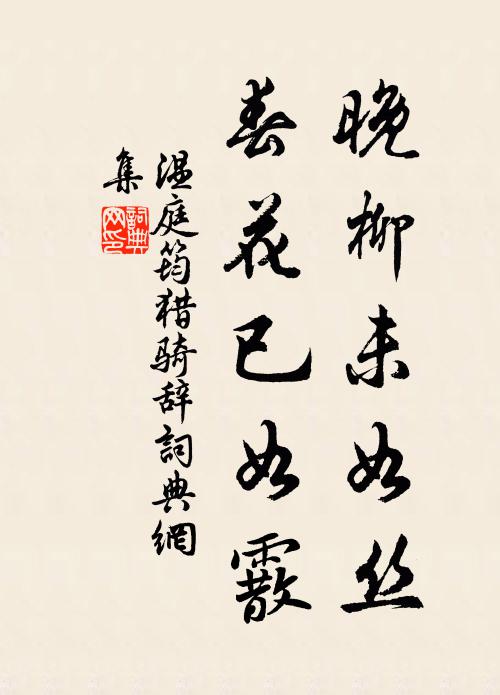 晚柳未如丝
春花已如霰
温庭筠猎骑辞詞典網
集
詞典
网印